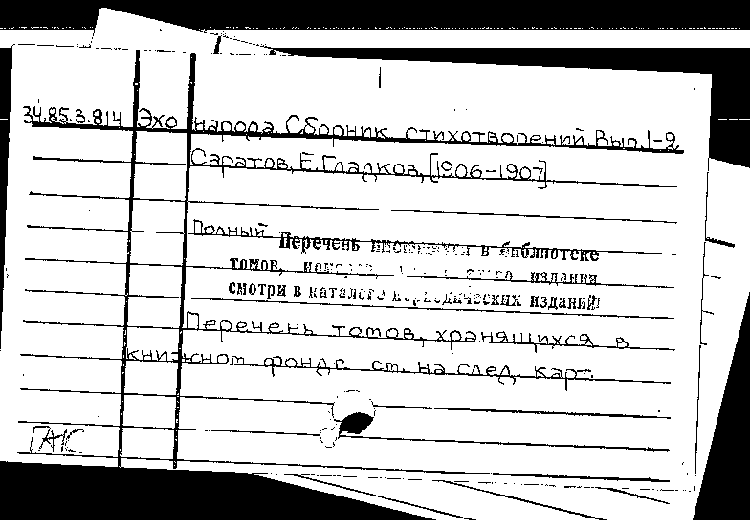 34.85.3.814 Эхо народа. Сборник стихотворений. Вып. 1-2
Саратов, Е. Гладков, [1906-1907].
Полный Перечень имеющихся в библиотеке
томов, номеров, этого издания
смотри в каталоге периодических изданий
Перечень томов, хранящихся в
книжном фонде см. на след. карт.
ГАК